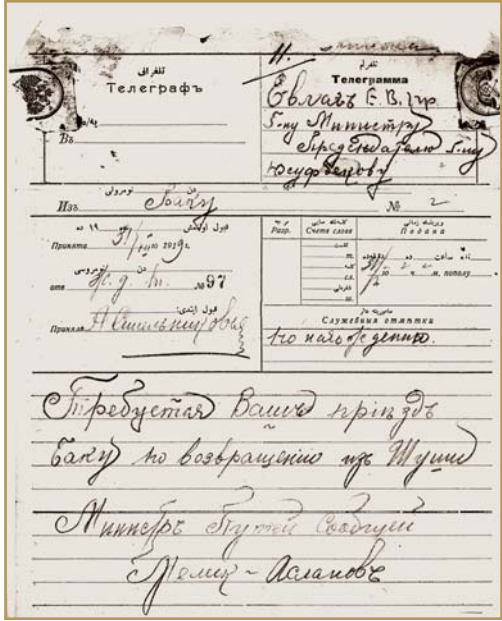 11.
تلغراف
Телеграфъ
Въ
تلغرام
Телеграмма
Евлахъ Е. В. пр.
Г-ну Министру
Председателю Г-ну
Юсуфбекову
Изъ Баку № 2
Принята 31/ 1919 г.
قبول اولنمش
ото Ж. д. № 97
قبول ایتدی:
Принялъ
Разр.
Счетъ словъ
Подана
ч. м. пополу
Служебныя отмѣтки
по нахождению.
Требуется Вашъ пріѣздъ
Баку по возвращению изъ Шуши
Министръ Путей Сообщен
Мелик-Аслановъ